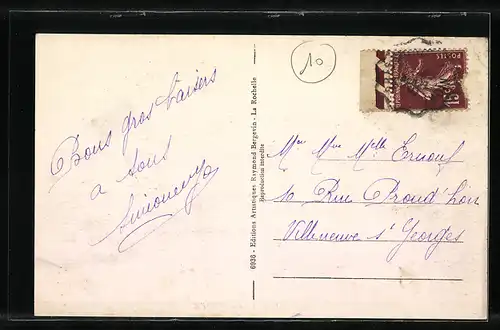 Bons gros baisers
a tous
10
POSTES
15c
6936 - Editions Artistiques Raymond Bergevin - La Rochelle
Reproduction interdite
Mr Mme Melle Ernouf
Rue Proud'hon
Villeneuve St Georges